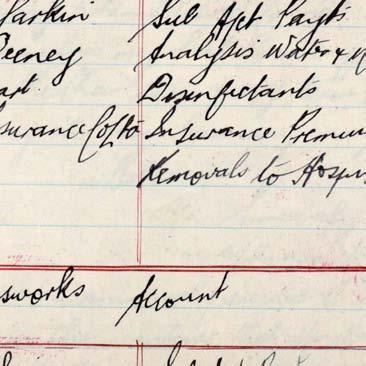 Larkin Sub Agt Payts
Feeney Analysis Water &
art. Disinfectants
surance Cos Insurance Premiu
Removals to Hospi
sworks Account